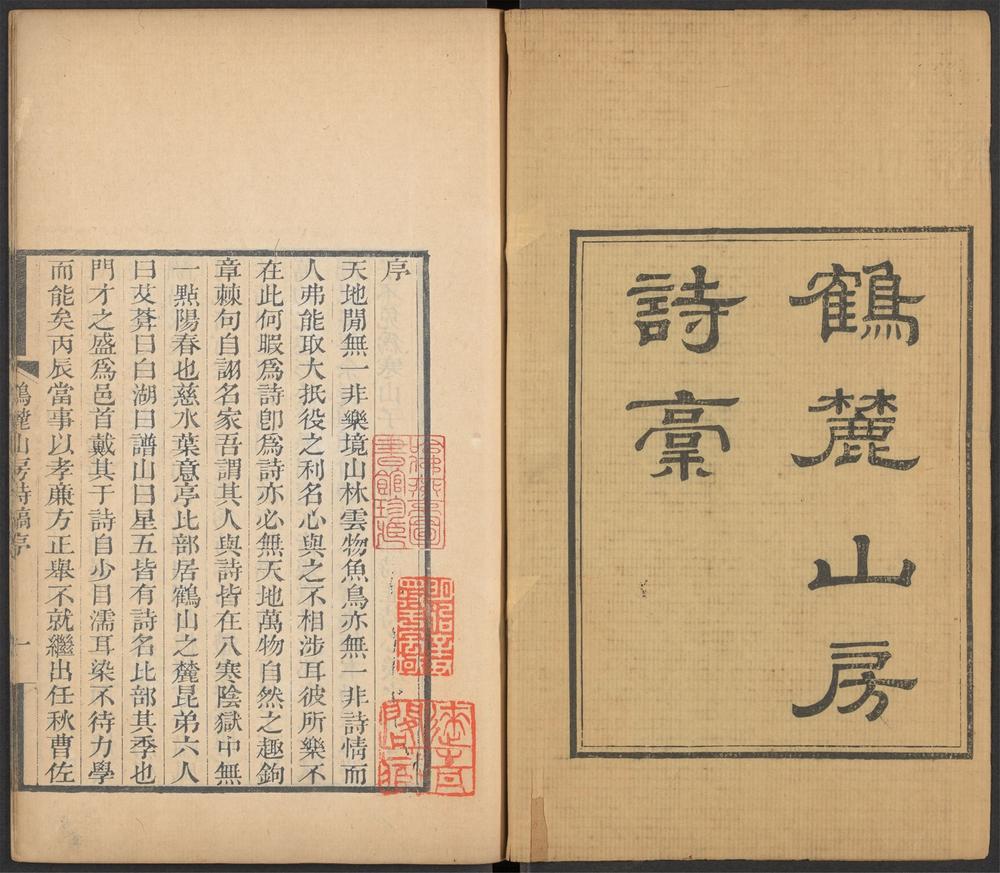 鶴麓山房
詩稾
序
天地閒無一非樂境山林雲物魚鳥亦無一非詩情而
人弗能取大抵役之利名心與之不相涉耳彼所樂不
在此何暇爲詩卽爲詩亦必無天地萬物自然之趣鉤
章棘句自詡名家吾謂其人與詩皆在八寒陰獄中無
一點陽春也慈水葉意亭比部居鶴山之麓昆弟六人
曰艾莽曰白湖曰譜山曰星五皆有詩名比部其季也
門才之盛爲邑首戴其于詩自少目濡耳染不待力學
而能矣丙辰當事以孝廉方正舉不就繼出任秋曹佐
鶴麓山房詩稿序
一